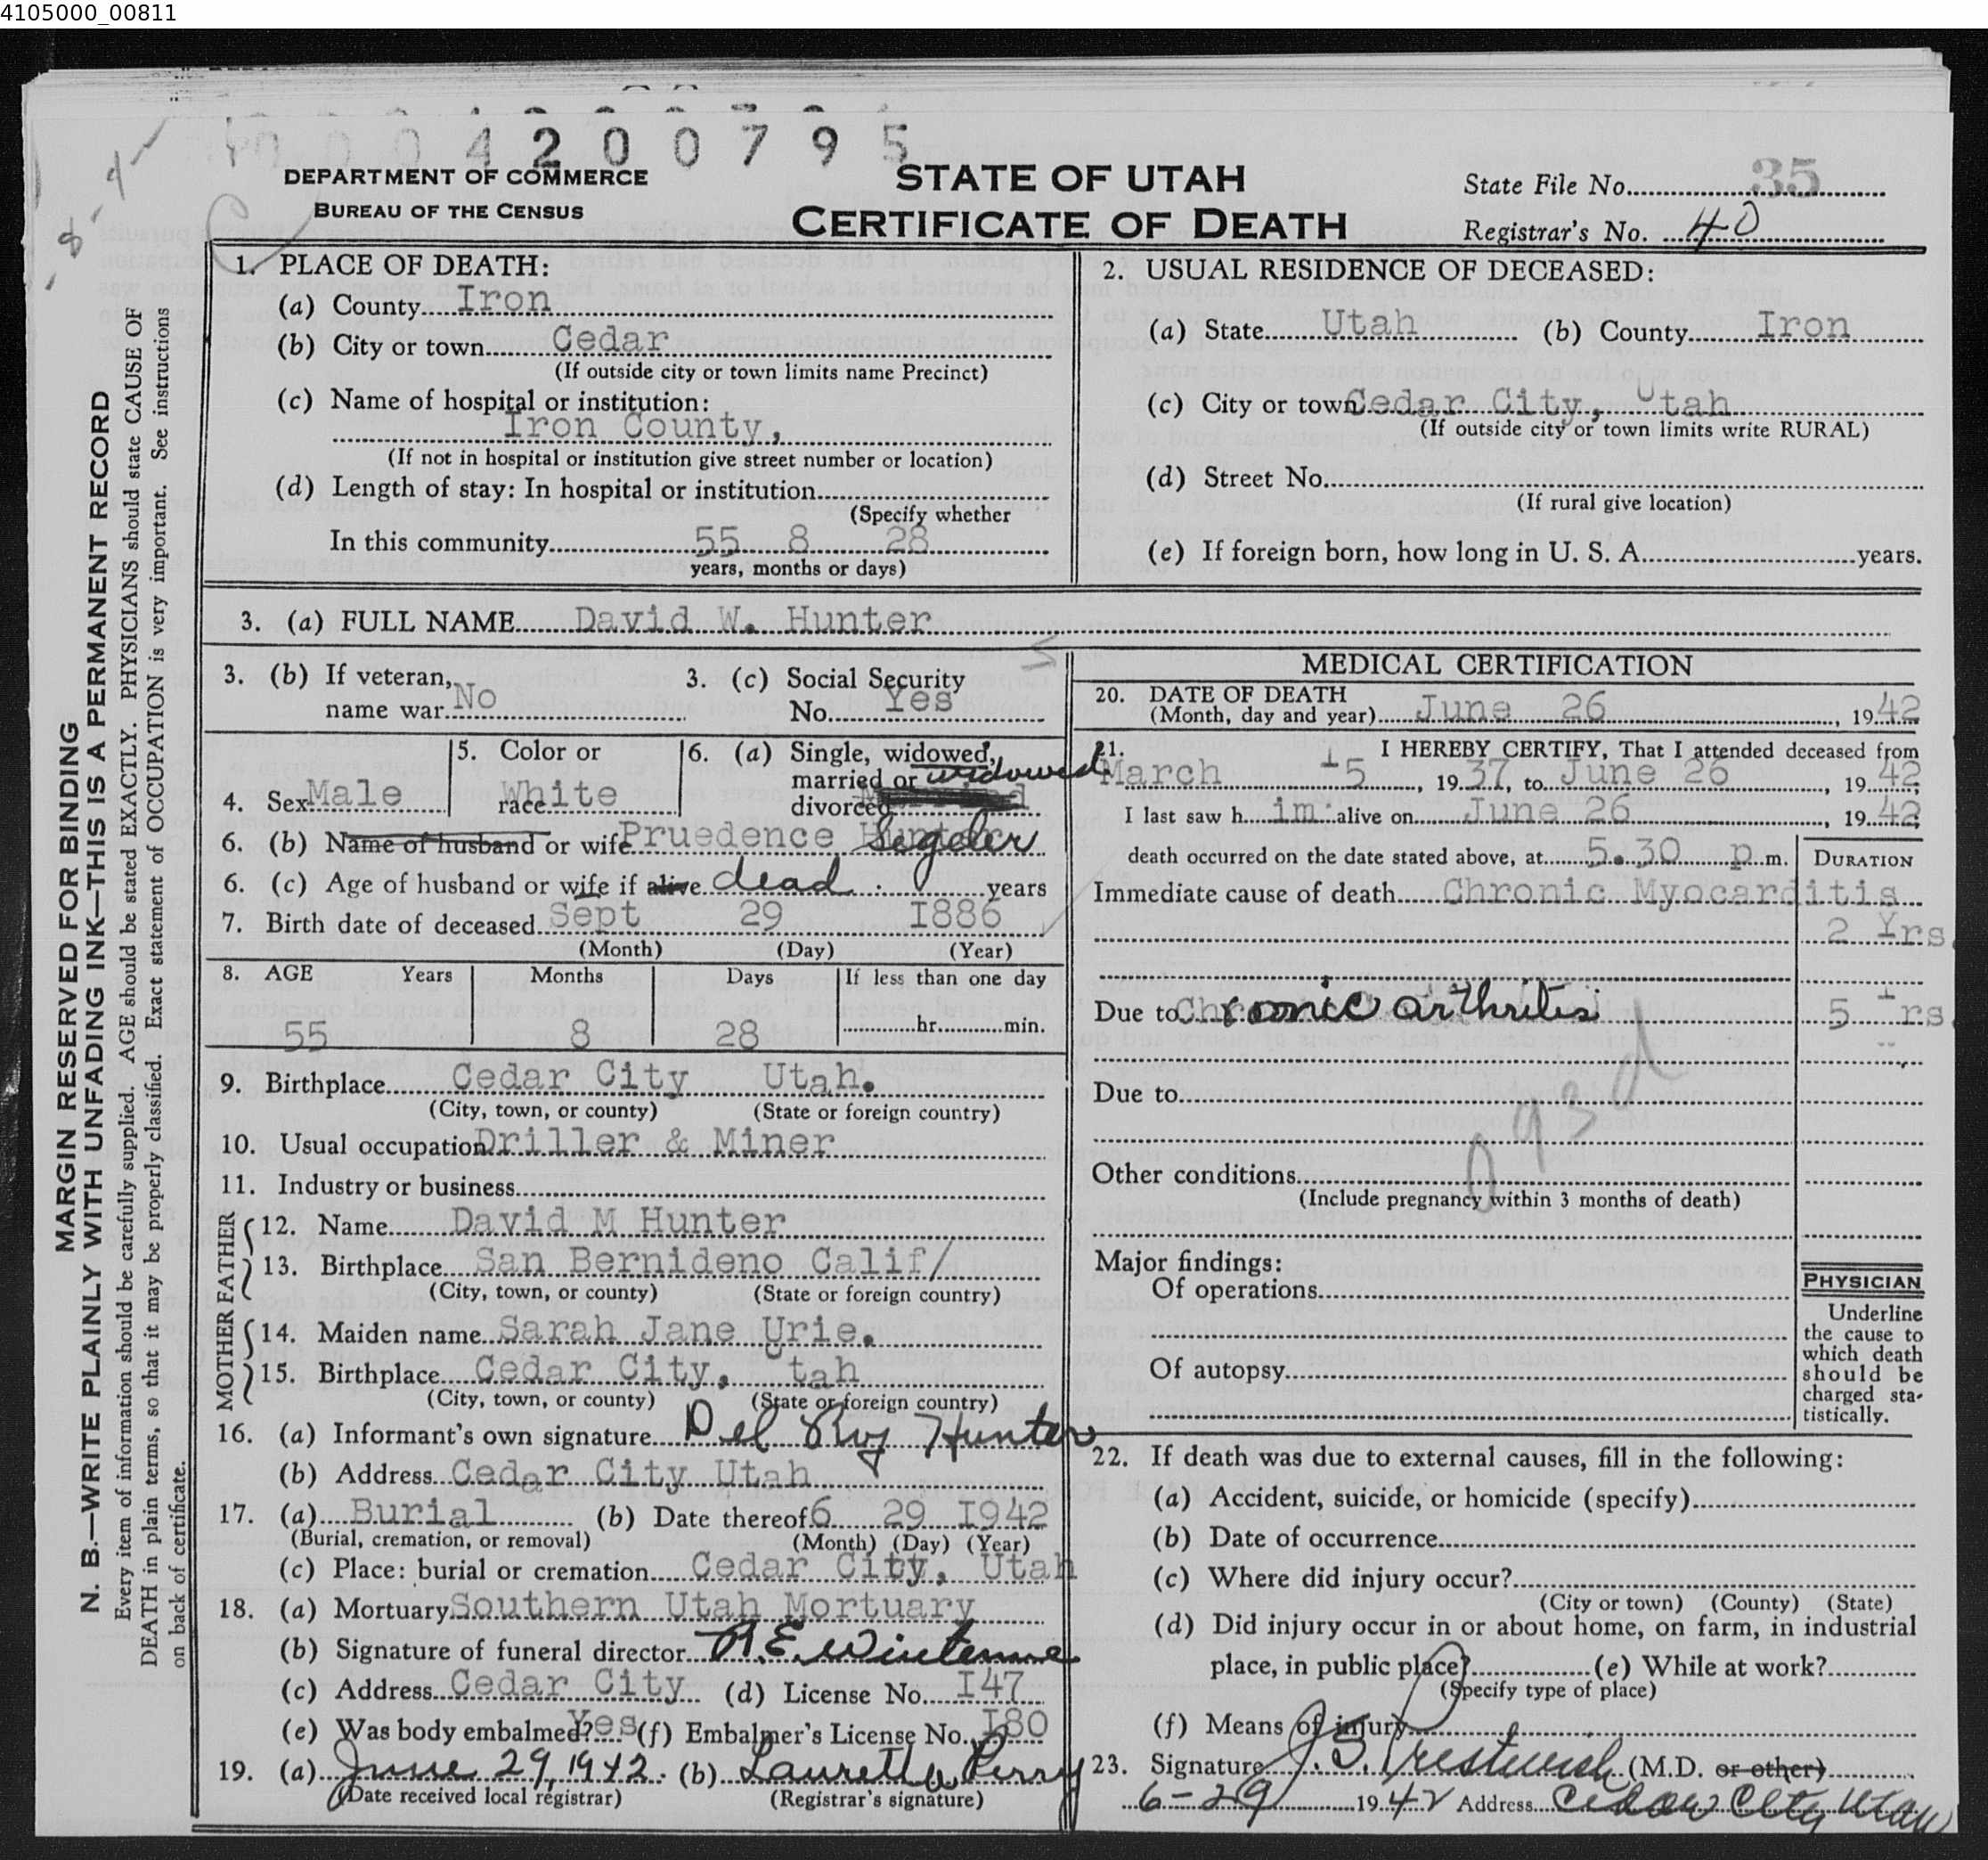 4105000_00811
0004200795
DEPARTMENT OF COMMERCE
BUREAU OF THE CENSUS
STATE OF UTAH
CERTIFICATE OF DEATH
State File No. 35
Registrar's No. 40
MARGIN RESERVED FOR BINDING
N. B.—WRITE PLAINLY WITH UNFADING INK—THIS IS A PERMANENT RECORD
Every item of information should be carefully supplied. AGE should be stated EXACTLY. PHYSICIANS should state CAUSE OF
DEATH in plain terms, so that it may be properly classified. Exact statement of OCCUPATION is very important. See instructions
on back of certificate.
1. PLACE OF DEATH:
(a) County Iron
(b) City or town Cedar
(If outside city or town limits name Precinct)
(c) Name of hospital or institution:
Iron County,
(If not in hospital or institution give street number or location)
(d) Length of stay: In hospital or institution
(Specify whether
In this community 55 8 28
years, months or days)
2. USUAL RESIDENCE OF DECEASED:
(a) State Utah (b) County Iron
(c) City or town Cedar City, Utah
(If outside city or town limits write RURAL)
(d) Street No.
(If rural give location)
(e) If foreign born, how long in U. S. A. years.
3. (a) FULL NAME David W. Hunter
3. (b) If veteran,
name war No
3. (c) Social Security
No. Yes
4. Sex Male
5. Color or
race White
6. (a) Single, widowed,
married or widowed
divorced
6. (b) Name of husband or wife Pruedence
6. (c) Age of husband or wife if alive dead years
7. Birth date of deceased Sept 29 I886
(Month) (Day) (Year)
8. AGE Years Months Days If less than one day
55 8 28 hr. min.
9. Birthplace Cedar City Utah.
(City, town, or county) (State or foreign country)
10. Usual occupation Driller & Miner
11. Industry or business
FATHER
12. Name David M Hunter
13. Birthplace San Bernideno Calif/
(City, town, or county) (State or foreign country)
MOTHER
14. Maiden name Sarah Jane Urie.
15. Birthplace Cedar City, Utah
(City, town, or county) (State or foreign country)
16. (a) Informant's own signature Del Roy Hunter
(b) Address Cedar City Utah
17. (a) Burial (b) Date thereof 6 29 I942
(Burial, cremation, or removal) (Month) (Day) (Year)
(c) Place: burial or cremation Cedar City, Utah
18. (a) Mortuary Southern Utah Mortuary
(b) Signature of funeral director
(c) Address Cedar City (d) License No. I47
(e) Was body embalmed? Yes (f) Embalmer's License No. I80
19. (a) June 29, 1942. (b) Lauretta Perry
(Date received local registrar) (Registrar's signature)
MEDICAL CERTIFICATION
20. DATE OF DEATH
(Month, day and year) June 26, 1942
21. I HEREBY CERTIFY, That I attended deceased from
March 15, 1937, to June 26, 1942;
I last saw h im alive on June 26, 1942;
death occurred on the date stated above, at 5.30 p m.
DURATION
Immediate cause of death Chronic Myocarditis
2 Yrs.
Due to Chronic arthritis 5 Yrs.
Due to
093d
Other conditions
(Include pregnancy within 3 months of death)
Major findings:
Of operations
Of autopsy
PHYSICIAN
Underline
the cause to
which death
should be
charged sta-
tistically.
22. If death was due to external causes, fill in the following:
(a) Accident, suicide, or homicide (specify)
(b) Date of occurrence
(c) Where did injury occur?
(City or town) (County) (State)
(d) Did injury occur in or about home, on farm, in industrial
place, in public place? (e) While at work?
(Specify type of place)
(f) Means of injury
23. Signature J. S. Prestwich (M.D. or other)
6-29 1942 Address Cedar City Utah